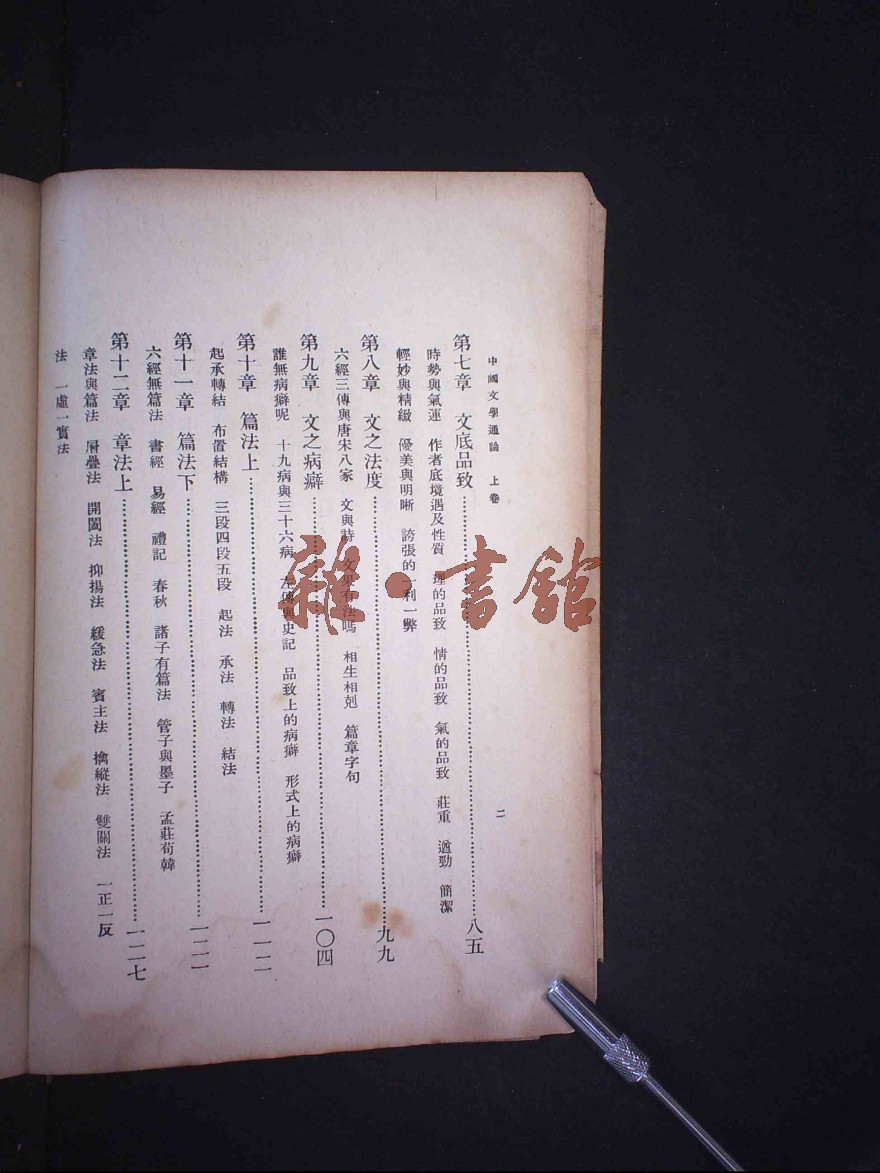 中國文學通論 上卷 二
第七章 文底品致 八五
時勢與氣運 作者底境遇及性質 理的品致 情的品致 氣的品致 莊重 遒勁 簡潔
輕妙與精緻 優美與明晰 誇張的一利一弊
第八章 文之法度 九九
六經三傳與唐宋八家 文與詩 文果有法嗎 相生相剋 篇章字句
第九章 文之病癖 一〇四
誰無病癖呢 十九病與三十六病 左傳與史記 品致上的病癖 形式上的病癖
第十章 篇法上 一一二
起承轉結 布置結構 三段四段五段 起法 承法 轉法 結法
第十一章 篇法下
六經無篇法 書經 易經 禮記 春秋 諸子有篇法 管子與墨子 孟莊荀韓
第十二章 章法上 一二七
章法與篇法 層疊法 開闔法 抑揚法 緩急法 賓主法 擒縱法 雙關法 一正一反
法 一虛一實法
雜·書館